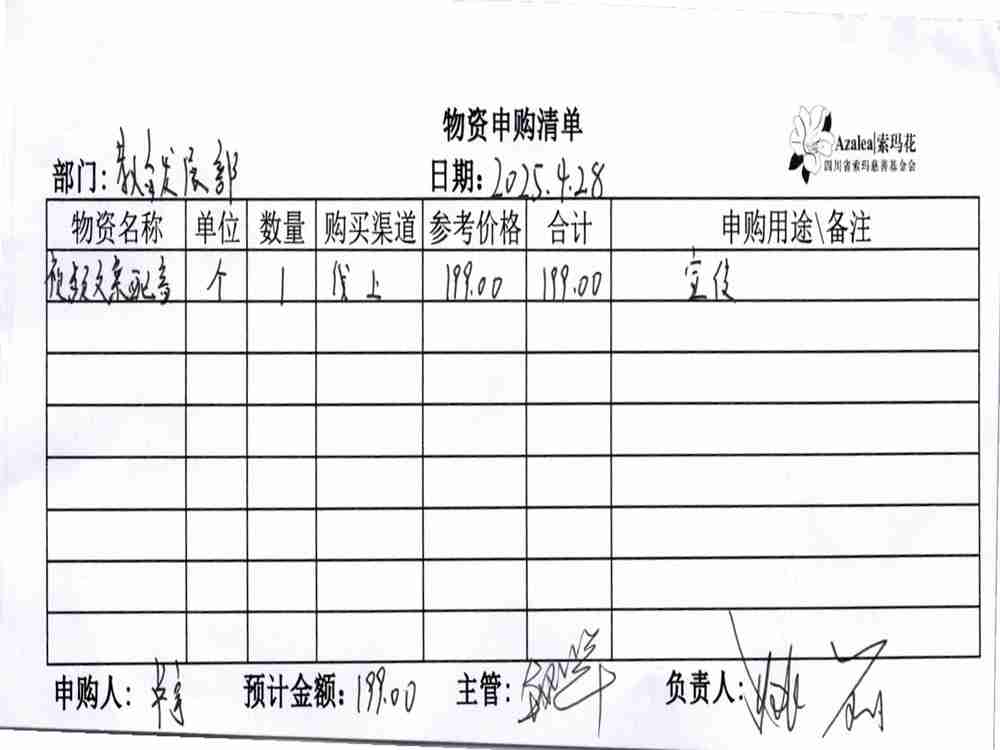 物资申购清单
Azalea|索玛花
四川省索玛慈善基金会
部门: 教育发展部 日期: 2025.4.28
物资名称 单位 数量 购买渠道 参考价格 合计 申购用途\备注
视频文案配音 个 1 线上 199.00 199.00 宣传
申购人: 预计金额: 199.00 主管: 负责人: